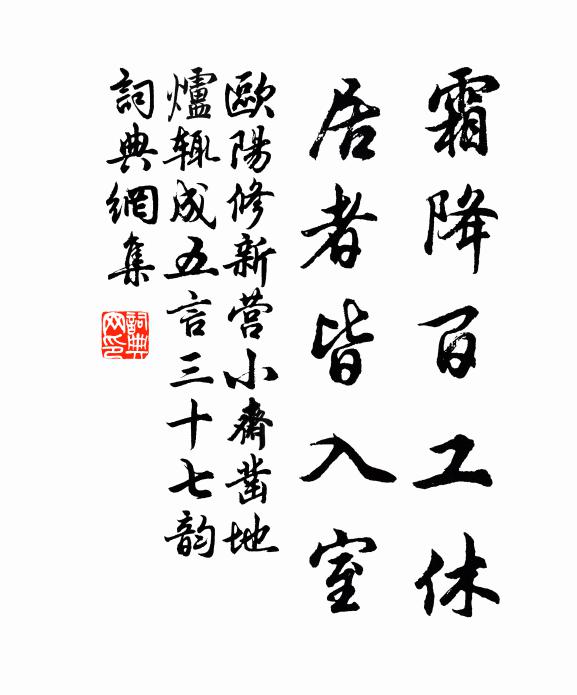 霜降百工休
居者皆入室
歐陽修新营小齋凿地
爐辄成五言三十七韵
詞典網集
詞典网印